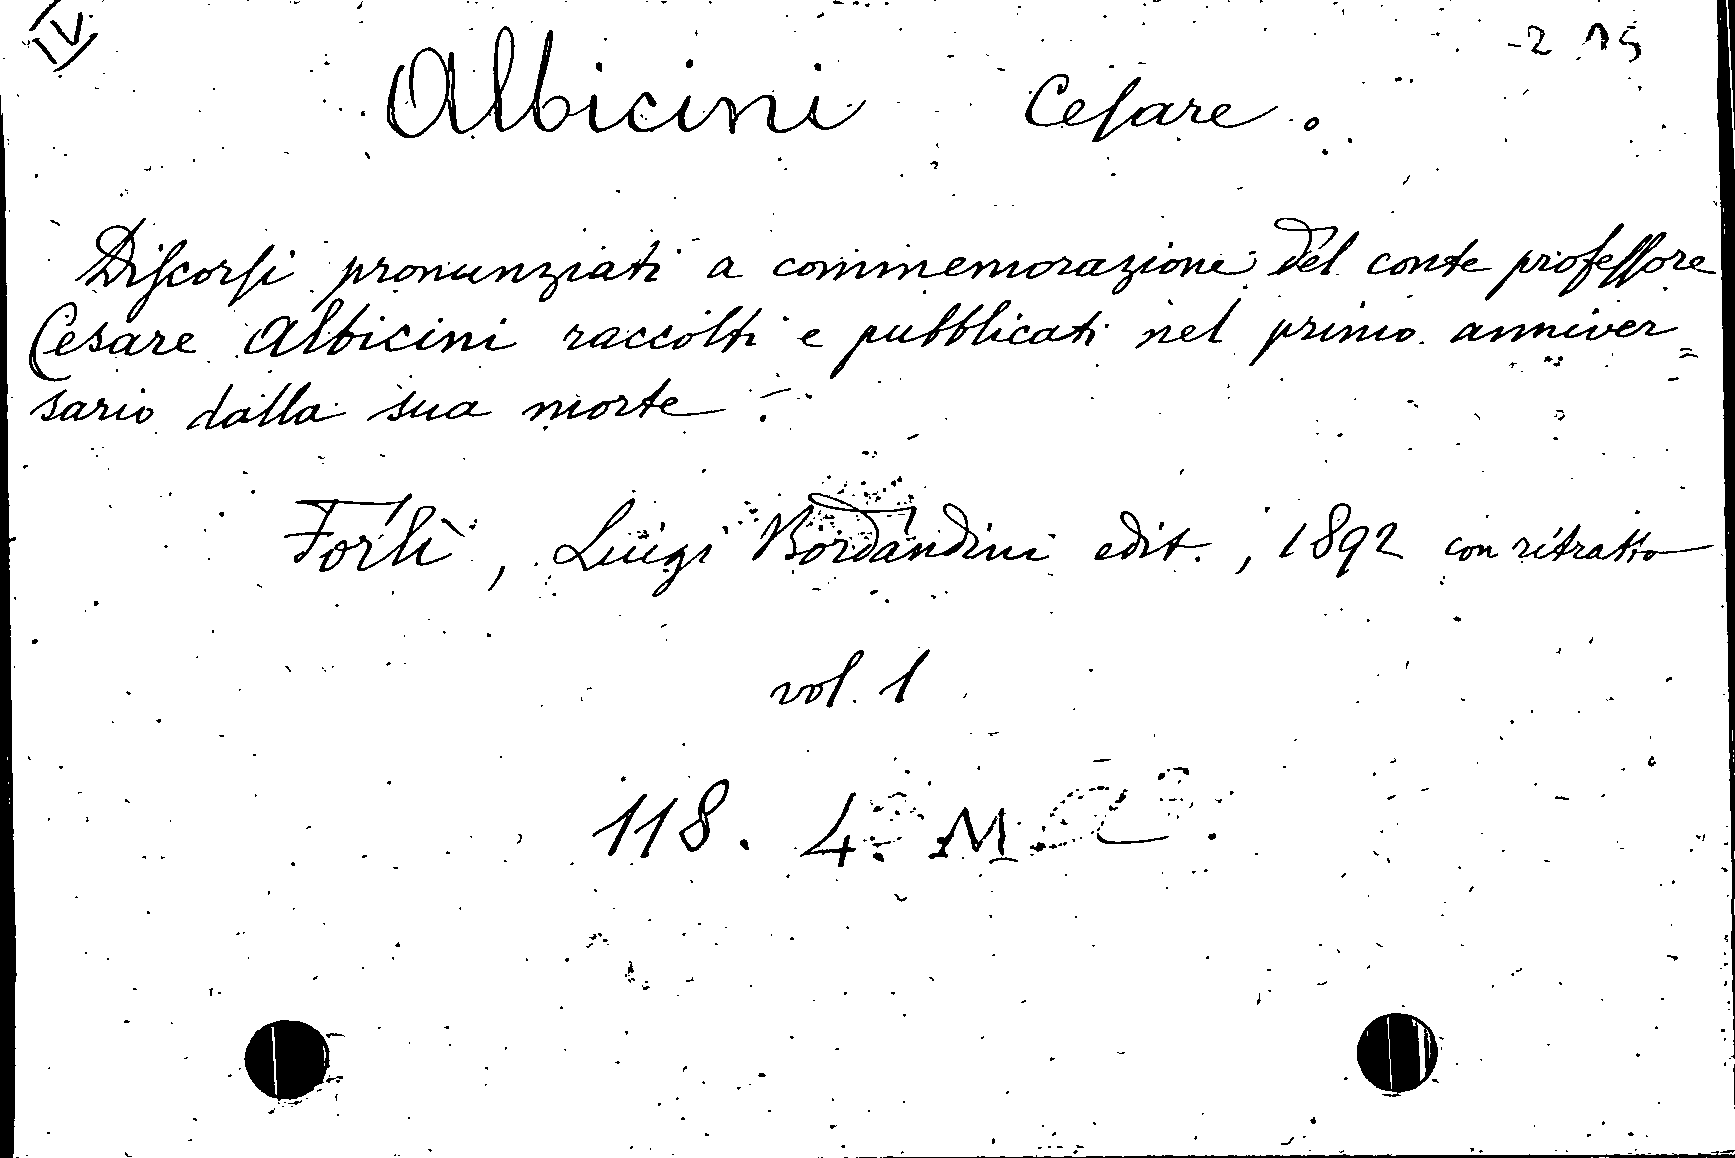 IV
-2 15
Albicini Cesare.
Discorsi pronunziati a commemorazione del conte professore
Cesare Albicini raccolti e pubblicati nel primo anniver=
sario dalla sua morte.
Forlì, Luigi Bordandini edit., 1892 con ritratto
vol. 1
118. 4. M